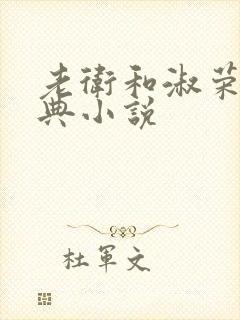 老衛和淑荣
典小説
杜軍文